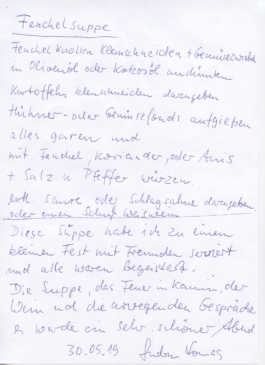 Fenchelsuppe
Fenchel knollen kleinschneiden + Gemüsezwiebel
in Olivenöl oder Kokosöl andünsten
Kartoffeln kleinschneiden dazugeben
Hühner- oder Gemüsefonds aufgießen
alles garen und
mit Fenchel, Koriander, oder Anis
+ Salz u Pfeffer würzen,
evtl. saure oder Schlagsahne dazugeben
oder einen Schuß
Diese Suppe habe ich zu einem
kleinen Fest mit Freunden serviert
und alle waren begeistert.
Die Suppe, das Feuer im Kamin, der
Wein und die anregenden Gespräche
es wurde ein sehr schöner Abend
30.05.19